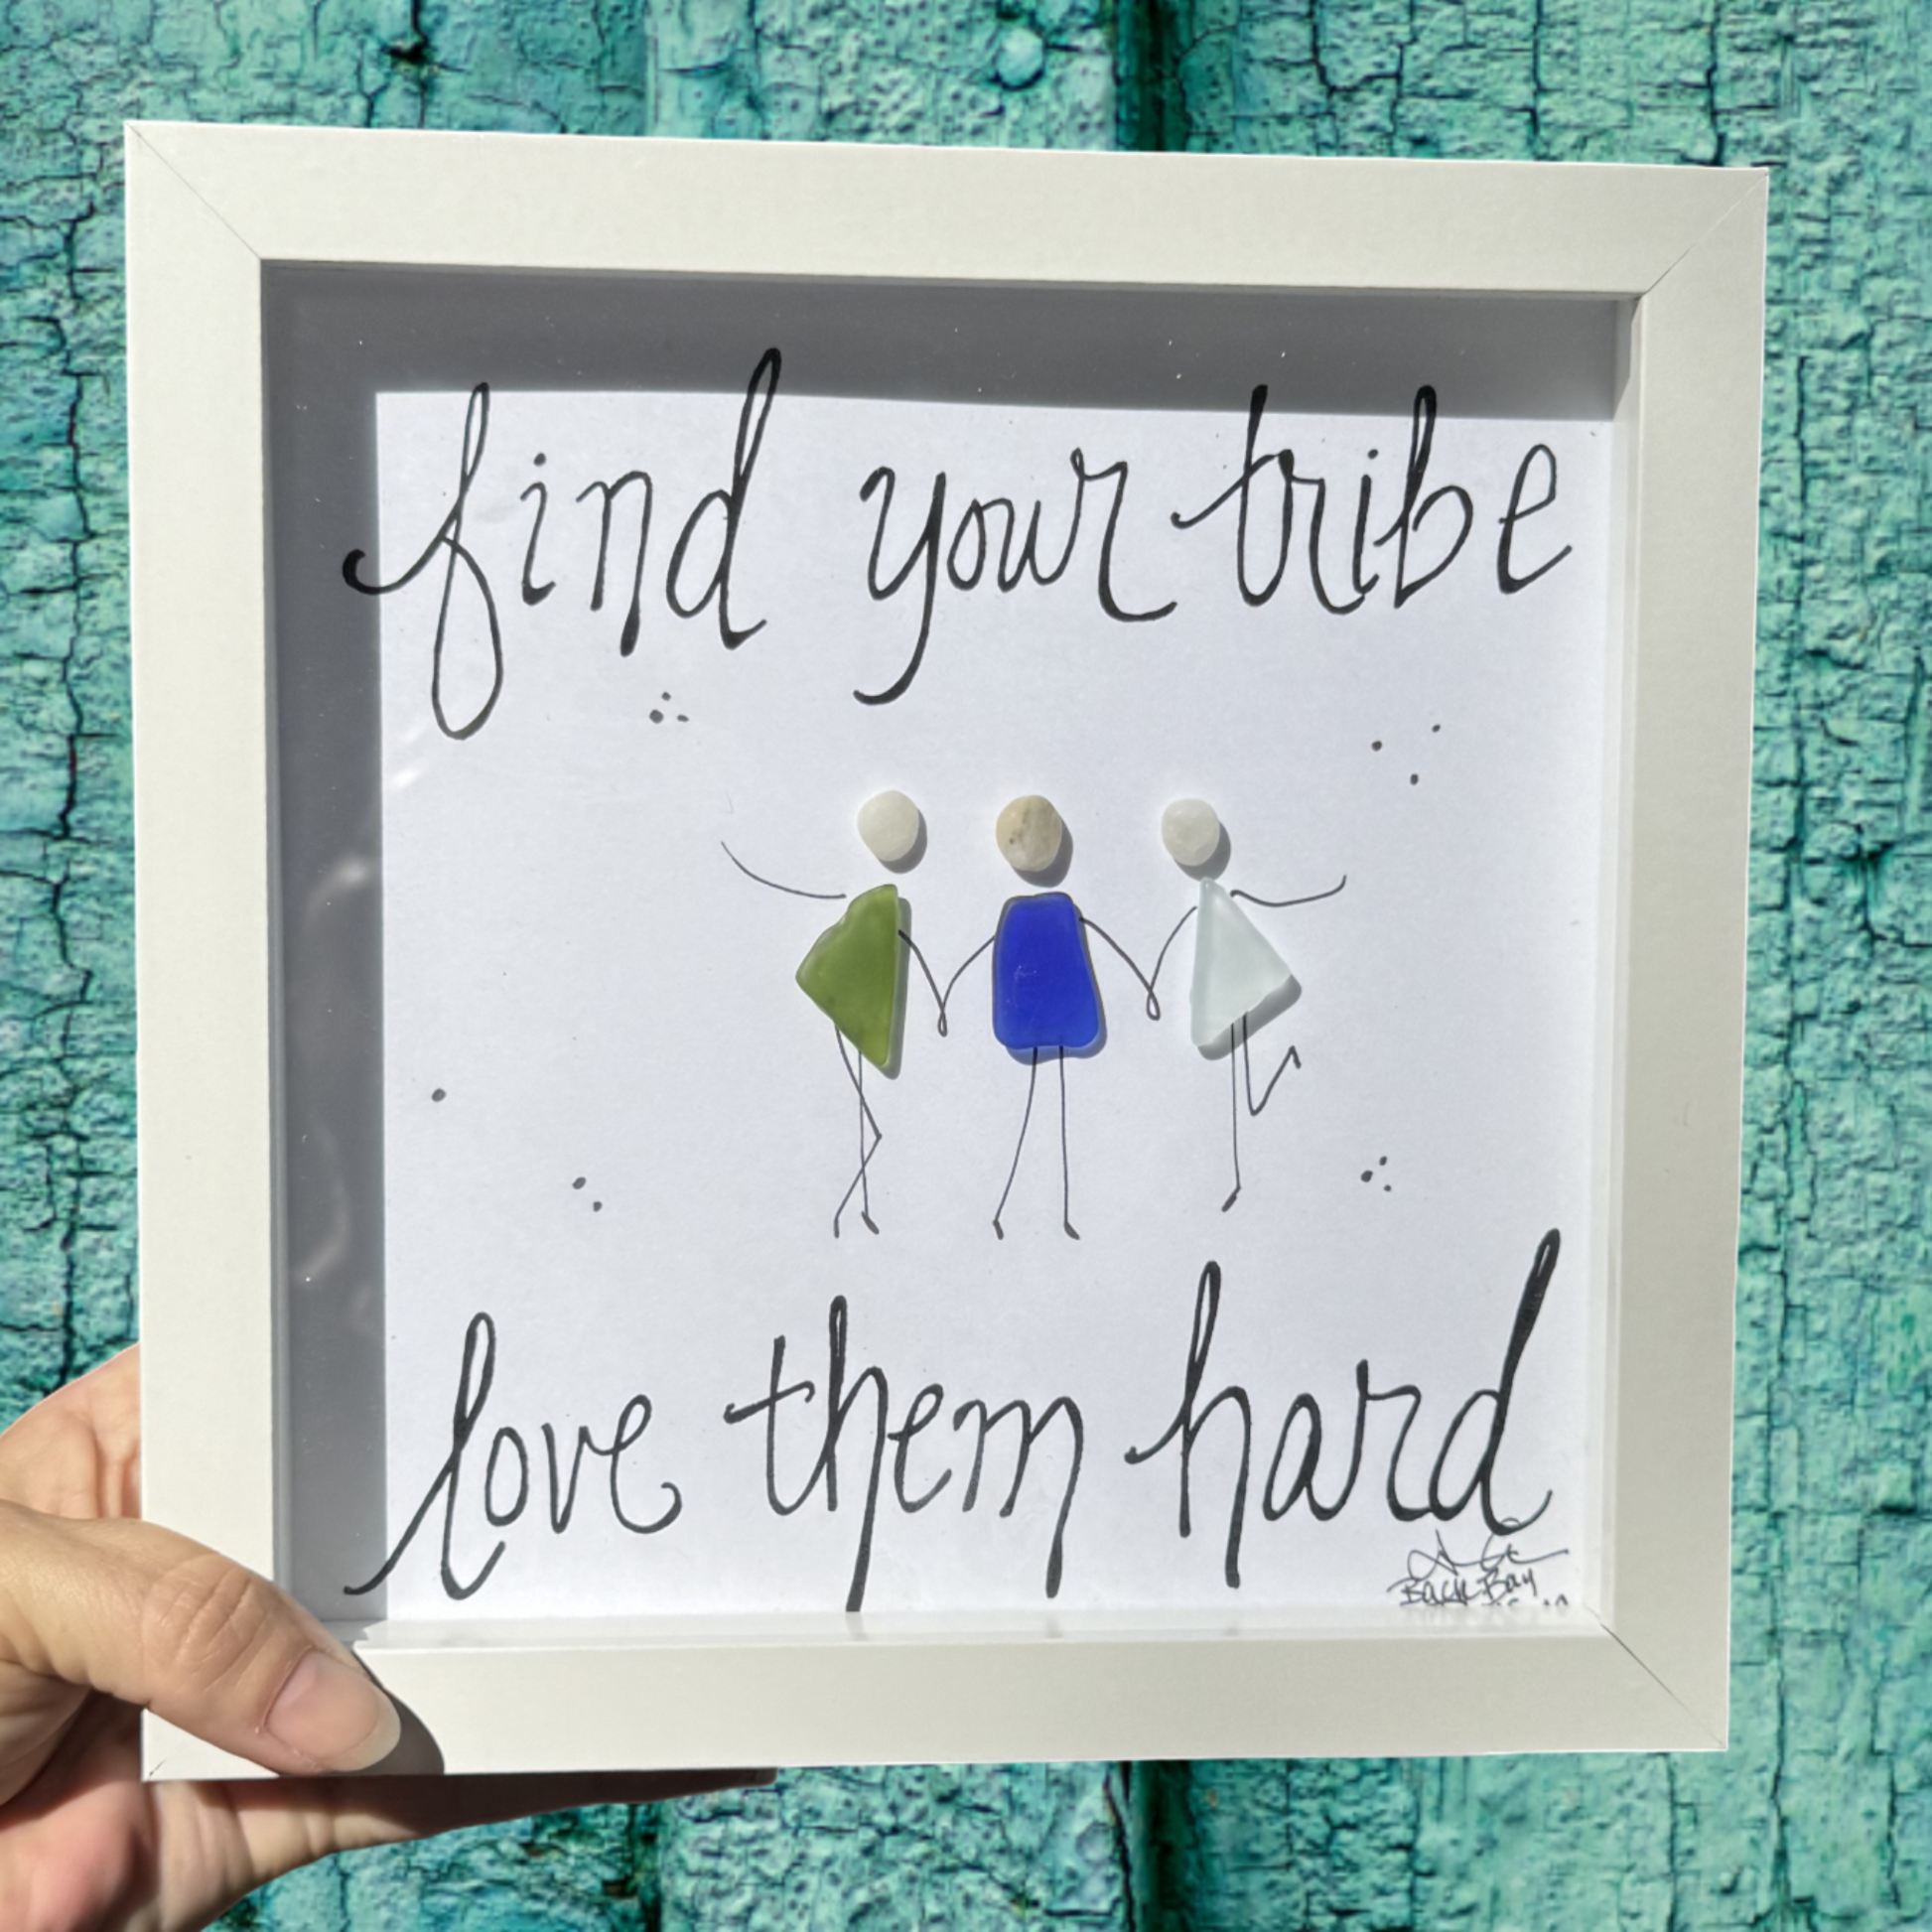 find your tribe
love them hard
Back Bay